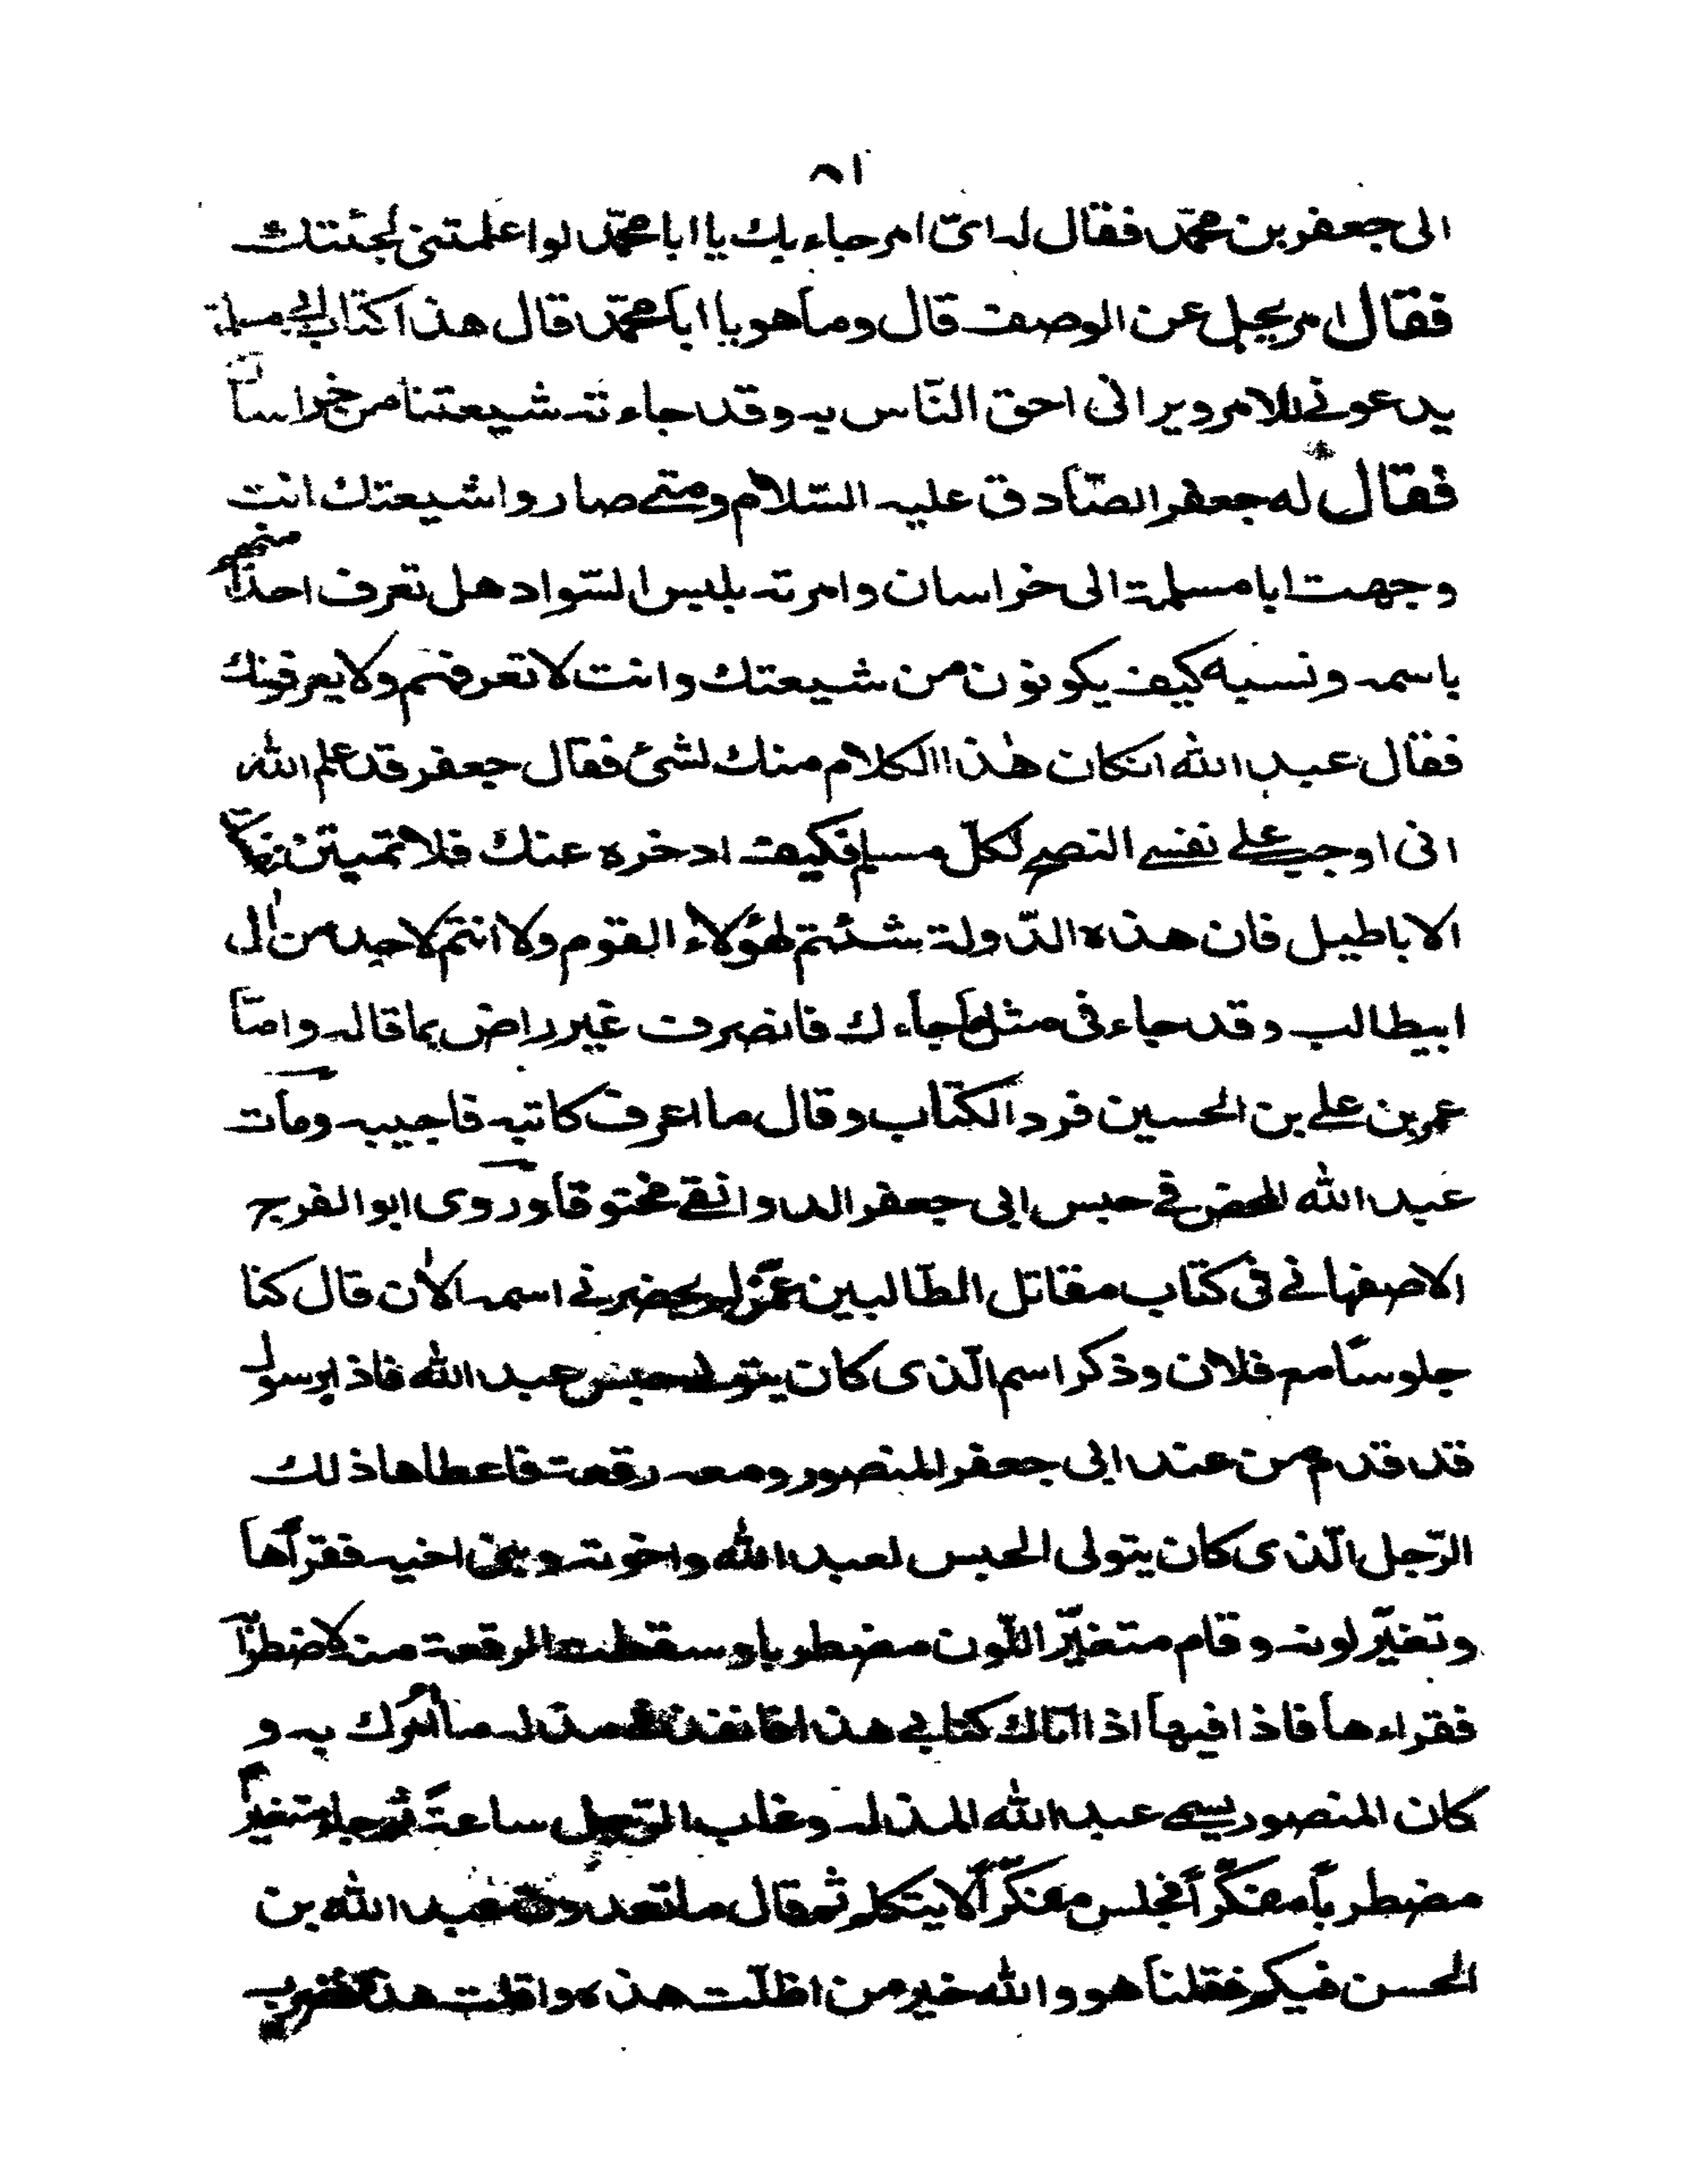 ٨١
الى جعفر بن محمّد فقال له اىّ امر جاء بك يا ابا محمّد لو اعلمتنى لجئتك
فقال امر يجل عن الوصف قال وما هو يا ابا محمّد قال هذا كتاب ابى مسلمة
يدعونى للامر ويرانى احق النّاس به وقد جاءته شيعتنا من خراسان
فقال له جعفر الصّادق عليه السّلام ومتى صاروا شيعتك انت
وجهت ابا مسلمة الى خراسان وامرته بلبس السّواد هل تعرف احداً منهم
باسمه ونسبه كيف يكونون من شيعتك وانت لا تعرفهم ولا يعرفونك
فقال عبد الله انكان هٰذا الكلام منك لشئ فقال جعفر قد علم الله
انى اوجب على نفسى النصح لكلّ مسلم فكيف ادخره عنك فلا تمنين نفسك
الاباطيل فان هذه الدّولة ستتم لهؤلاء القوم ولا انتم لاحد من اٰل
ابيطالب وقد جاءنى مثل ما جاءك فانصرف غير راض بما قاله وامّا
عمر بن على بن الحسين فرد الكتاب وقال ما اعرف كاتبه فاجيبه ومات
عبد الله المحض فى حبس ابى جعفر الدوانقى مختوقا وروى ابو الفرج
الاصفهانى فى كتاب مقاتل الطّالبين عمّن لم يحضرنى اسمه الاٰن قال كنا
جلوسًا مع فلان وذكر اسم الّذى كان يتولى حبس عبد الله فاذا برسول
قد قدم من عند ابى جعفر المنصور ومعه رقعة فاعطاها ذلك
الرّجل الّذى كان يتولى الحبس لعبد الله واخوته وبنى اخيه فقرأها
وتغيّر لونه وقام متغيّر اللّون مضطربا وسقطت الرقعة منه لاضطرابه
فقراءها فاذا فيها اذا اتاك كتابى هذا فانفذ فى مذله ما آمرك به و
كان المنصور يسمى عبد الله المذله وغاب الرّجل ساعةً ثم جاء متغيراً
مضطرباً مفكّراً فجلس مفكّراً لا يتكلم ثم قال ما تعدون عبد الله بن
الحسن فيكم فقلنا هو والله خير من اظلّت هذه واقلت هذه فضرب